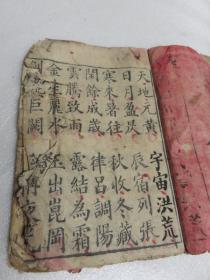 天地元黃宇宙洪荒
日月盈昃辰宿列張
寒來暑往秋收冬藏
閏餘成歲律呂調陽
雲騰致雨露結為霜
金生麗水玉出崑岡
劍號巨闕